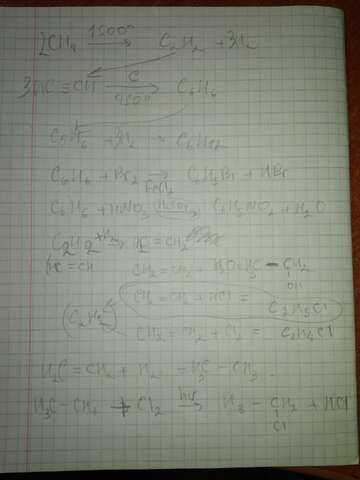 2CH4 1500° → C2H2 + 3H2
3HC ≡ CH C → 450° C6H6
C6H6 + 3H2 → C6H12
C6H6 + Br2 → FeCl2 C6H5Br + HBr
C6H6 + HNO3 H2SO4 → C6H5NO2 + H2O
C2H2 +H2 → H2C = CH2
HC ≡ CH
CH2 = CH2 + H2O = H3C — CH2
OH
CH2 = CH2 + HCl = C2H5Cl
CH2 = CH2 + Cl2 = C2H4Cl
H2C = CH2 + H2 = H3C — CH3
H3C — CH3 + Cl2 hν → H3 — CH2 + HCl
Cl